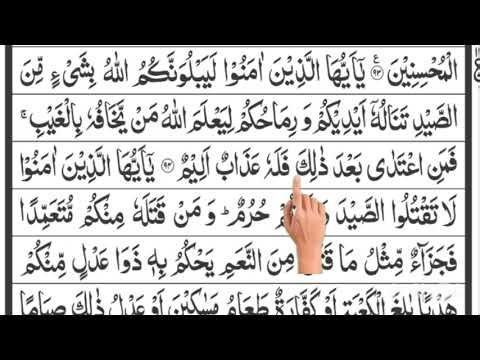 الْمُحْسِنِيْنَ ۩ع ﴿۹۳﴾ يٰۤاَيُّهَا الَّذِيْنَ اٰمَنُوْا لَيَبْلُوَنَّكُمُ اللّٰهُ بِشَیْءٍ مِّنَ
الصَّيْدِ تَنَالُهٗۤ اَيْدِيْكُمْ وَ رِمَاحُكُمْ لِيَعْلَمَ اللّٰهُ مَنْ يَّخَافُهٗ بِالْغَيْبِ ۚ
فَمَنِ اعْتَدٰى بَعْدَ ذٰلِكَ فَلَهٗ عَذَابٌ اَلِيْمٌ ﴿۹۴﴾ يٰۤاَيُّهَا الَّذِيْنَ اٰمَنُوْا
لَا تَقْتُلُوا الصَّيْدَ حُرُمٌ ؕ وَ مَنْ قَتَلَهٗ مِنْكُمْ مُّتَعَمِّدًا
فَجَزَآءٌ مِّثْلُ مَا مِنَ النَّعَمِ يَحْكُمُ بِهٖ ذَوَا عَدْلٍ مِّنْكُمْ
هَدْيًۢا بٰلِغَ الْكَعْبَةِ اَوْ كَفَّارَةٌ طَعَامُ مَسٰكِيْنَ اَوْ عَدْلُ ذٰلِكَ صِيَامًا